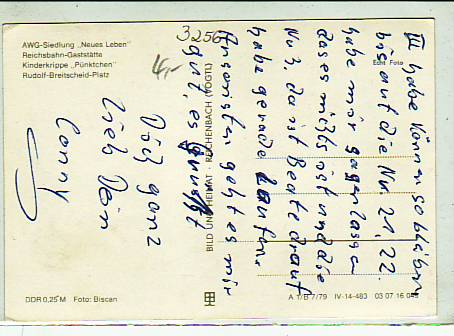 AWG-Siedlung „Neues Leben"
Reichsbahn-Gaststätte
Kinderkrippe „Pünktchen"
Rudolf-Breitscheid-Platz
3256
Echt Foto
III habe können so bleiben
bis auf die Nr. 21, 22.
habe mir sagen lassen
das es nichts ist und die
Nr. 3, da ist Beate drauf
habe gerade
Ansonsten geht es mir
gut, es
Dich ganz
lieb Dein
Conny
BILD UND HEIMAT · REICHENBACH (VOGTL)
DDR 0,25 M Foto: Biscan
A 1/B 7/79 IV-14-483 03 07 16 045